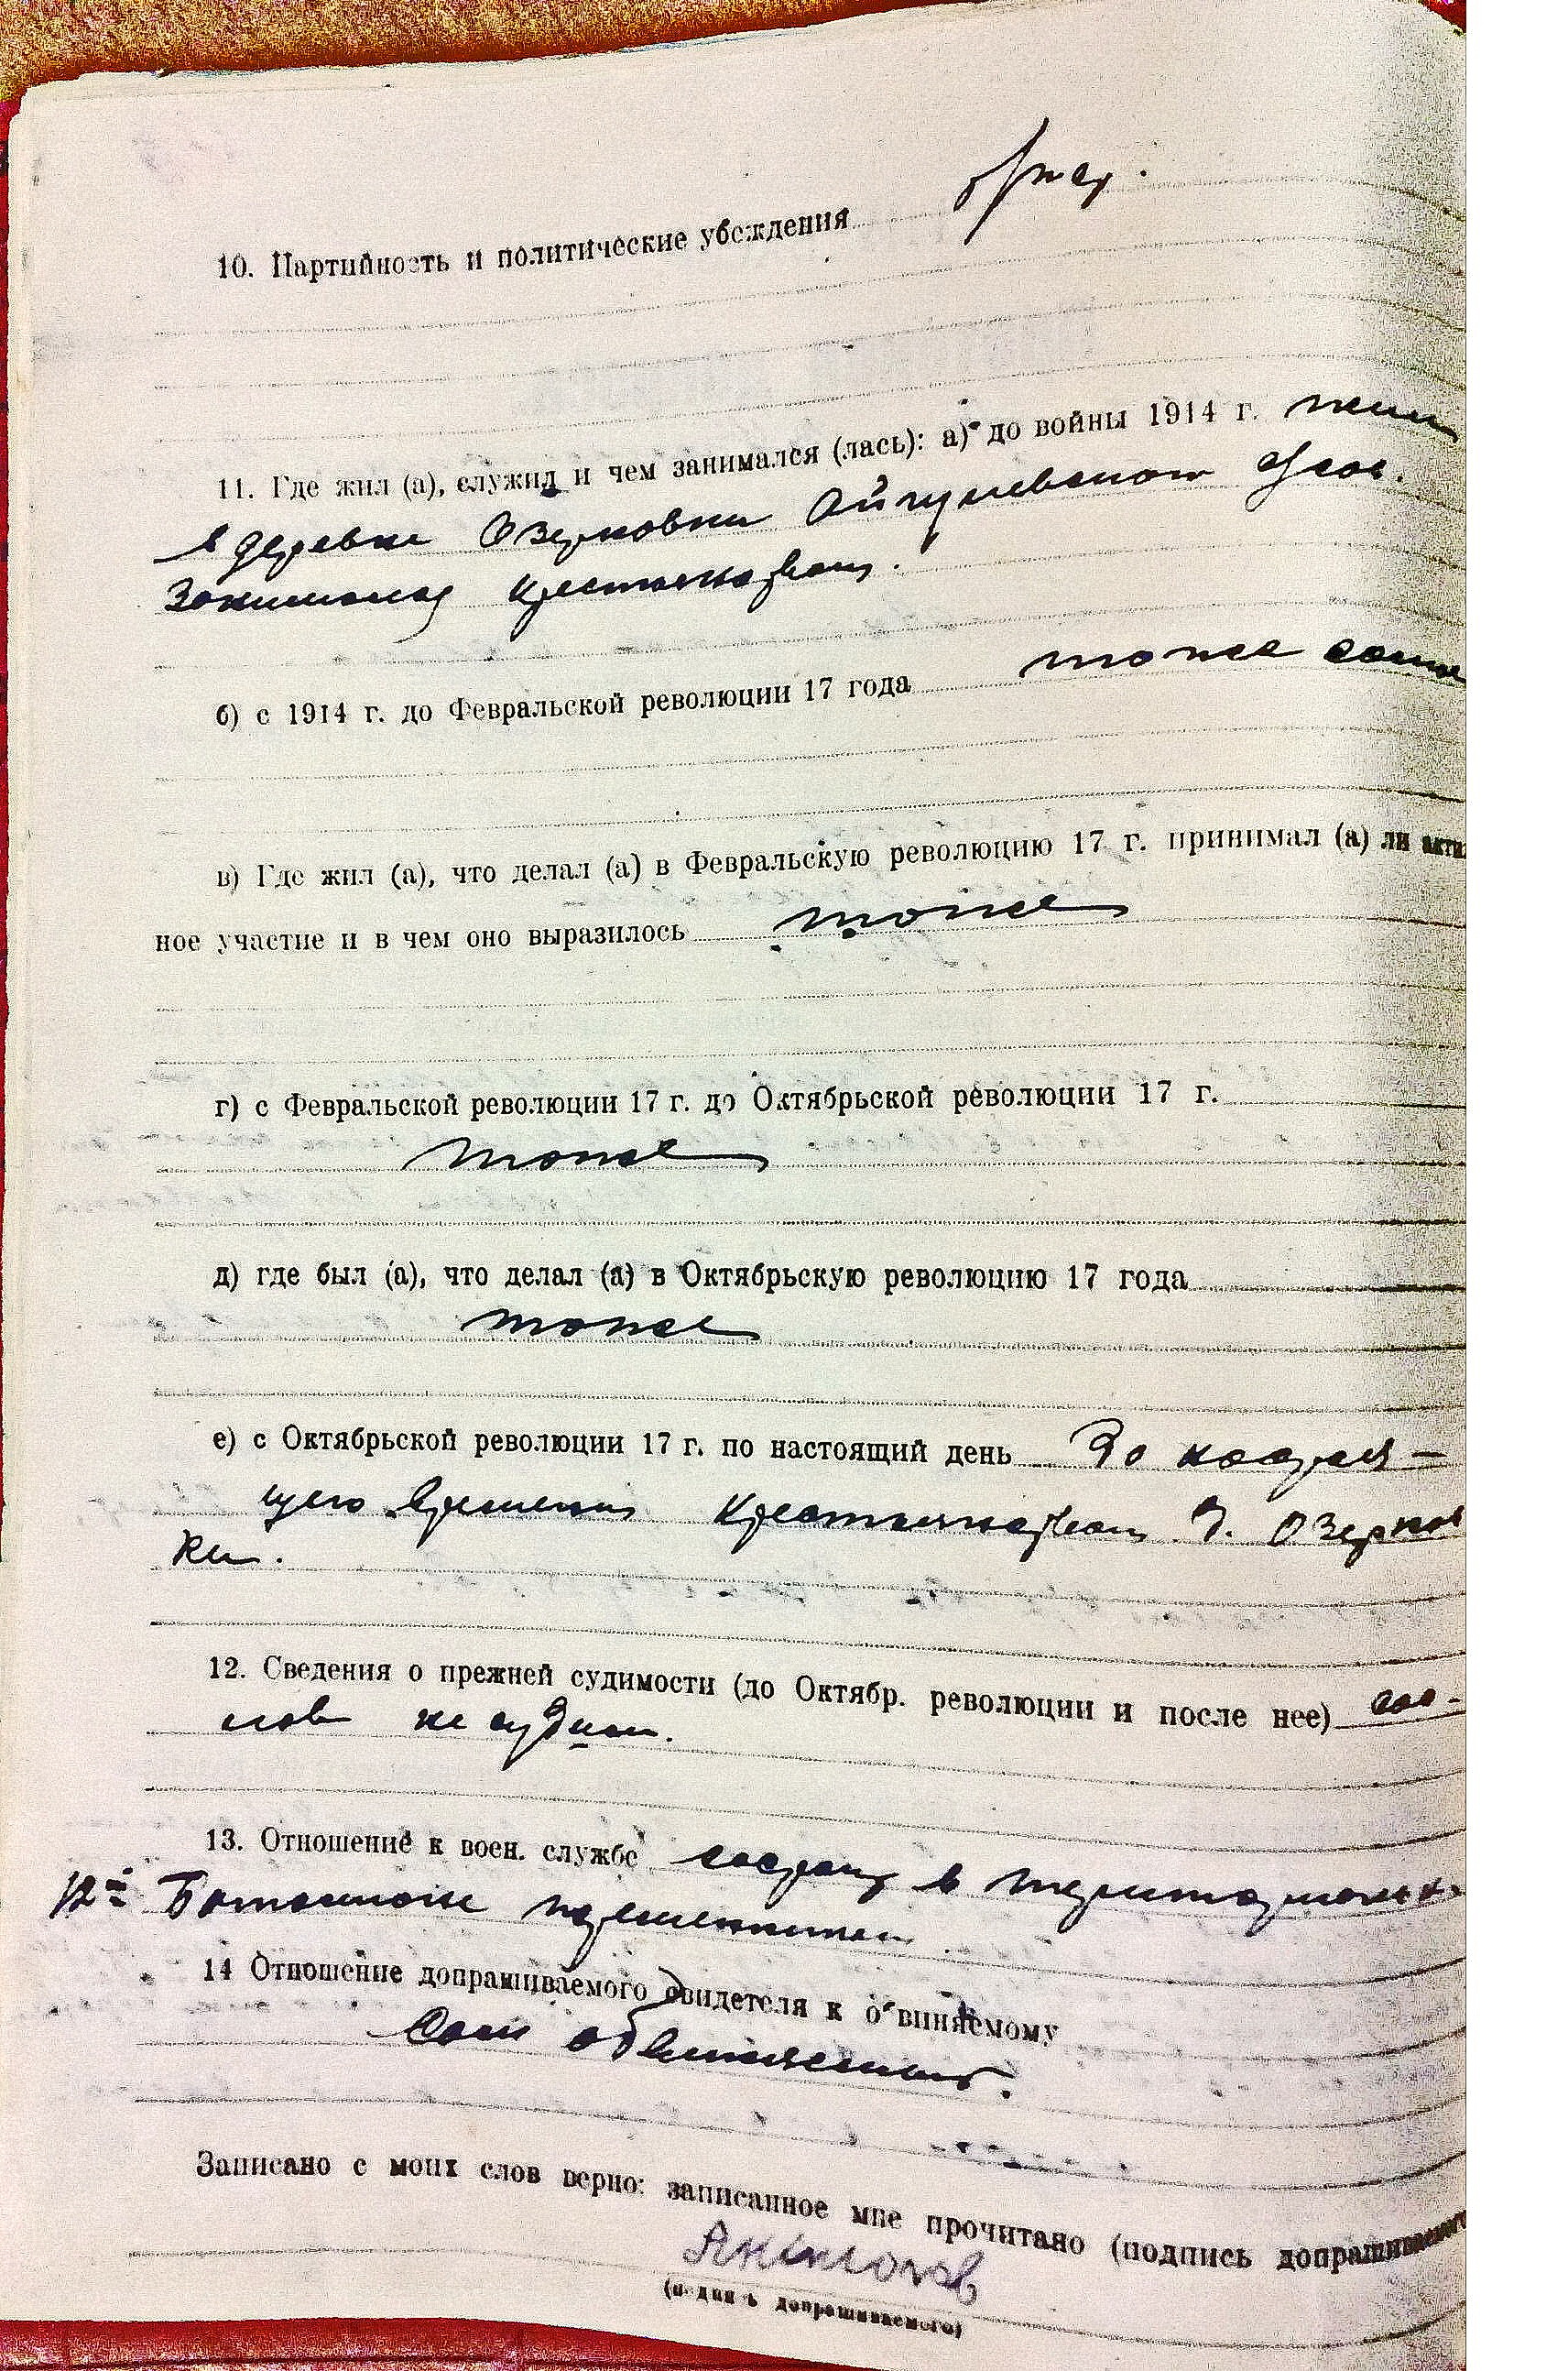 б/пар.
10. Партийность и политические убеждения
11. Где жил (а), служил и чем занимался (лась): а) до войны 1914 г. жил
в деревни Озерковки волос.
Занимался крестьянством.
б) с 1914 г. до Февральской революции 17 года тоже самое
в) Где жил (а), что делал (а) в Февральскую революцию 17 г. принимал (а) ли акти
ное участие и в чем оно выразилось тоже
г) с Февральской революции 17 г. до Октябрьской революции 17 г.
тоже
д) где был (а), что делал (а) в Октябрьскую революцию 17 года
тоже
е) с Октябрьской революции 17 г. по настоящий день До настоя-
щего времени крестьянством д. Озерков
ки.
12. Сведения о прежней судимости (до Октябр. революции и после нее) со
слов не судим.
13. Отношение к воен. службе состоит в
12м Батальоне
14 Отношение допрашиваемого свидетеля к обвиняемому
Сам обвиняемый.
Записано с моих слов верно: записанное мне прочитано (подпись допрашиваемого
(подпись допрашиваемого)